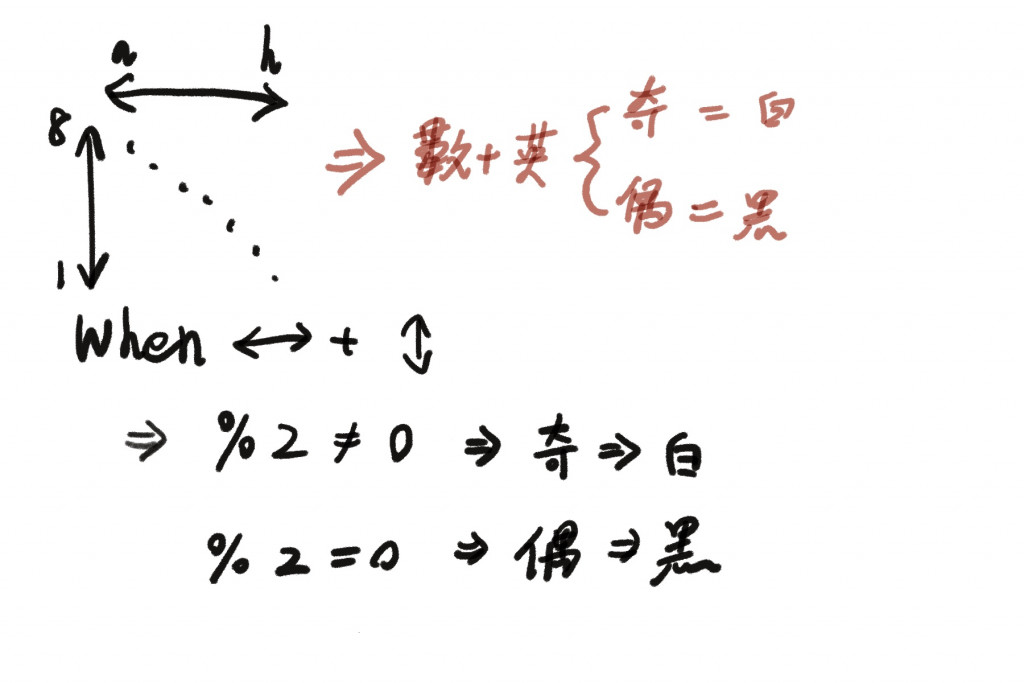 a h
8
1
⇒ 數+英 { 奇 = 白
偶 = 黑
When ↔ + ↕
⇒ %2≠0 ⇒ 奇 ⇒ 白
%2=0 ⇒ 偶 ⇒ 黑